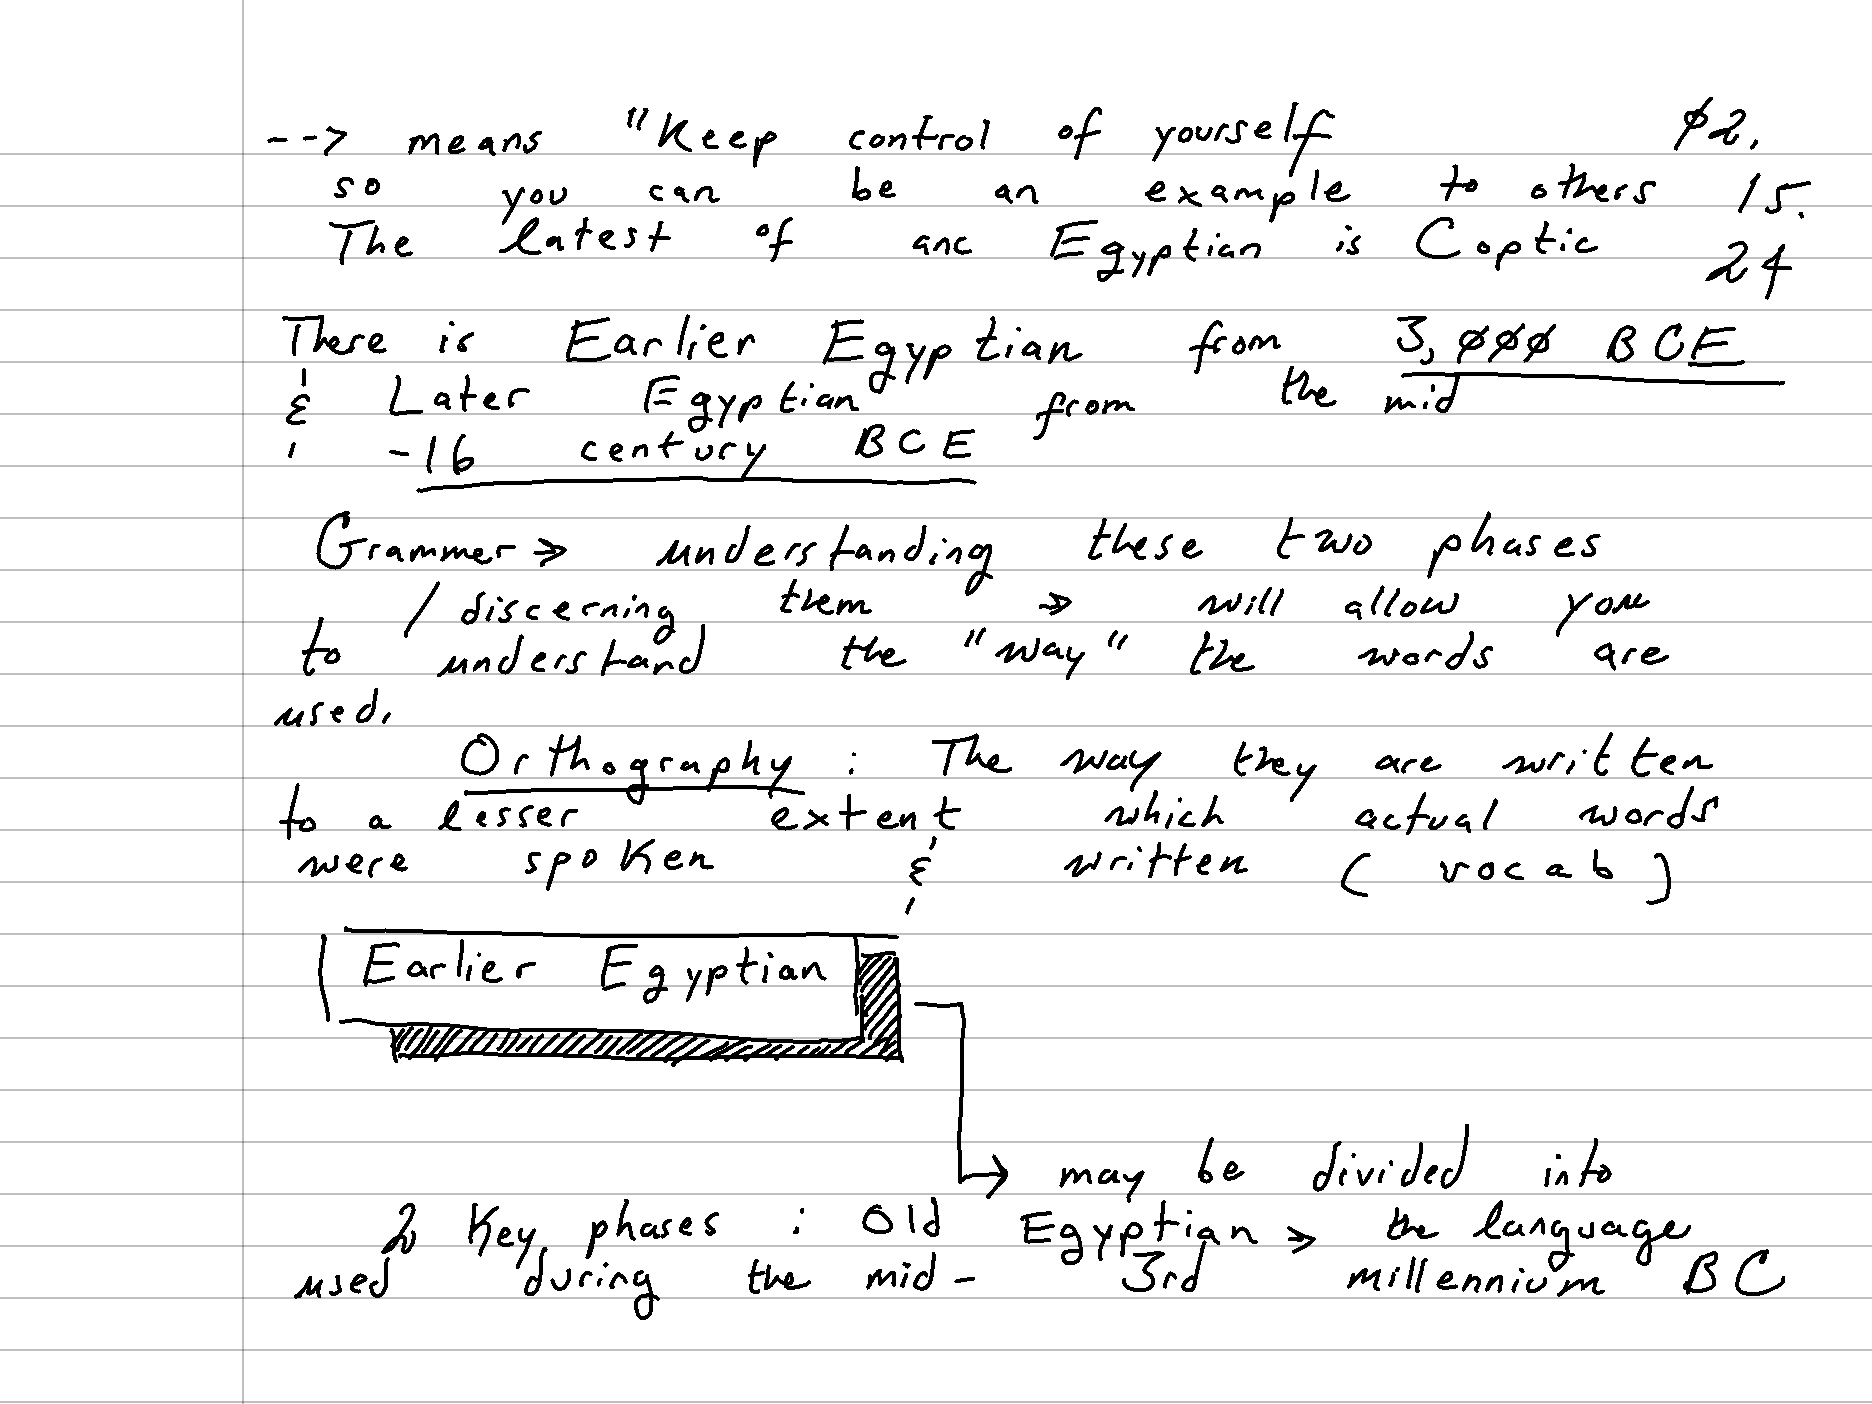 --> means "Keep control of yourself ø2.
so you can be an example to others 15.
The latest of anc Egyptian is Coptic 24
There is Earlier Egyptian from 3,øøø BCE
& Later Egyptian from the mid
-16 century BCE
Grammer => understanding these two phases
/ discerning them => will allow you
to understand the "way" the words are
used.
Orthography : The way they are written
to a lesser extent which actual words
were spoken & written (vocab)
Earlier Egyptian
→ may be divided into
2 Key phases : Old Egyptian => the language
used during the mid- 3rd millennium BC